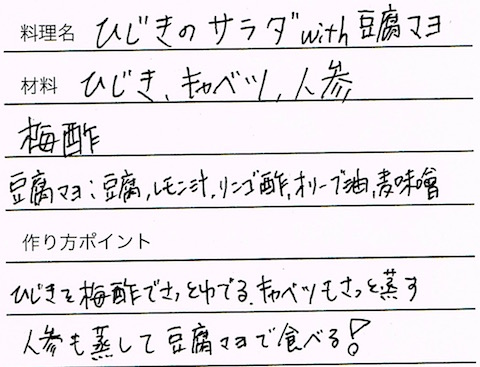 料理名 ひじきのサラダwith豆腐マヨ
材料 ひじき、キャベツ、人参
梅酢
豆腐マヨ:豆腐,レモン汁,リンゴ酢,オリーブ油,麦味噌
作り方ポイント
ひじきを梅酢でさっとゆでる、キャベツもさっと蒸す
人参も蒸して豆腐マヨで食べる!